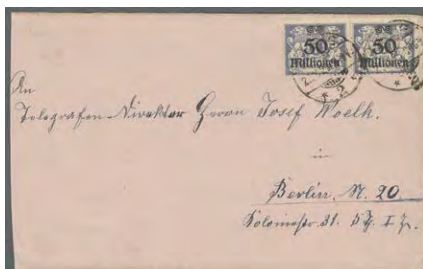 50 Millionen
50 Millionen
An
Telegrafen-Direktor Herrn Josef Woelk.
in
Berlin. N. 20.
31.